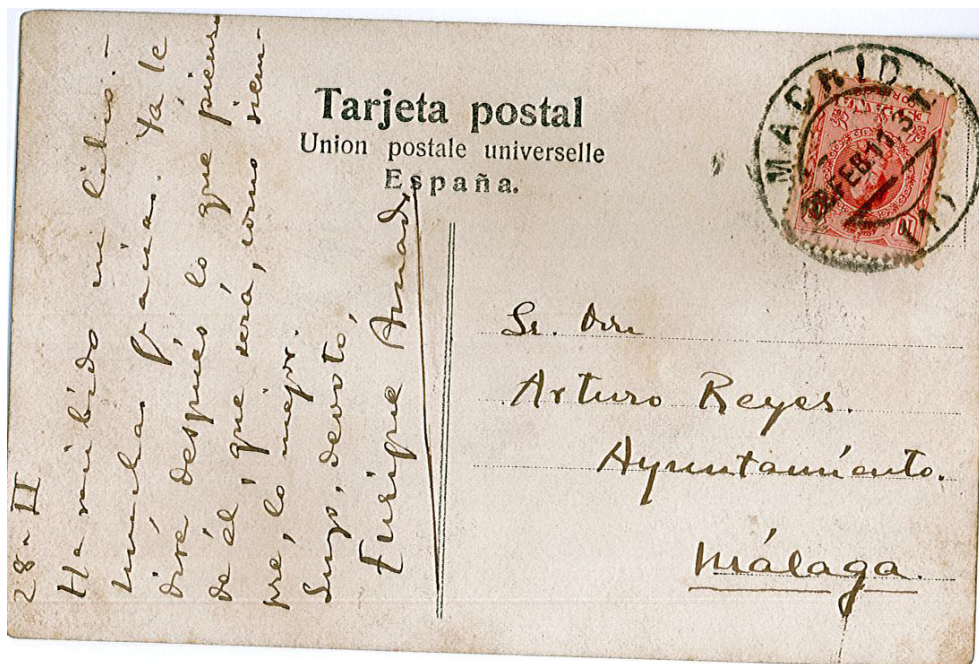 Tarjeta postal
Union postale universelle
España.
28-II
He recibido su libro.-
muchas gracias. Ya le
diré después lo que pienso
de él, que será, como siem-
pre, lo mejor.
Suyo, devoto,
Enrique Amado
Sr. Don
Arturo Reyes.
Ayuntamiento.
Málaga.
MADRID
FEB 11
10